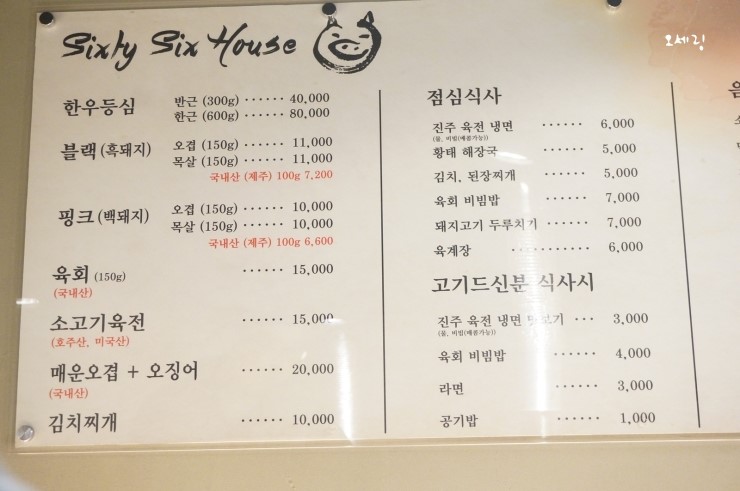 Sixty Six House
오세링
한우등심 반근 (300g) ······ 40,000
한근 (600g) ······ 80,000
블랙 (흑돼지) 오겹 (150g) ······ 11,000
목살 (150g) ······ 11,000
국내산 (제주) 100g 7,200
핑크 (백돼지) 오겹 (150g) ······ 10,000
목살 (150g) ······ 10,000
국내산 (제주) 100g 6,600
육회 (150g) ······ 15,000
(국내산)
소고기육전 ······ 15,000
(호주산, 미국산)
매운오겹 + 오징어 ······ 20,000
(국내산)
김치찌개 ······ 10,000
점심식사
진주 육전 냉면 ······ 6,000
(물, 비빔(매콤가능))
황태 해장국 ······ 5,000
김치, 된장찌개 ······ 5,000
육회 비빔밥 ······ 7,000
돼지고기 두루치기 ······ 7,000
육계장 ··········· 6,000
고기드신분 식사시
진주 육전 냉면 맛보기 ··· 3,000
(물, 비빔(매콤가능))
육회 비빔밥 ······ 4,000
라면 ······ 3,000
공기밥 ······ 1,000
음